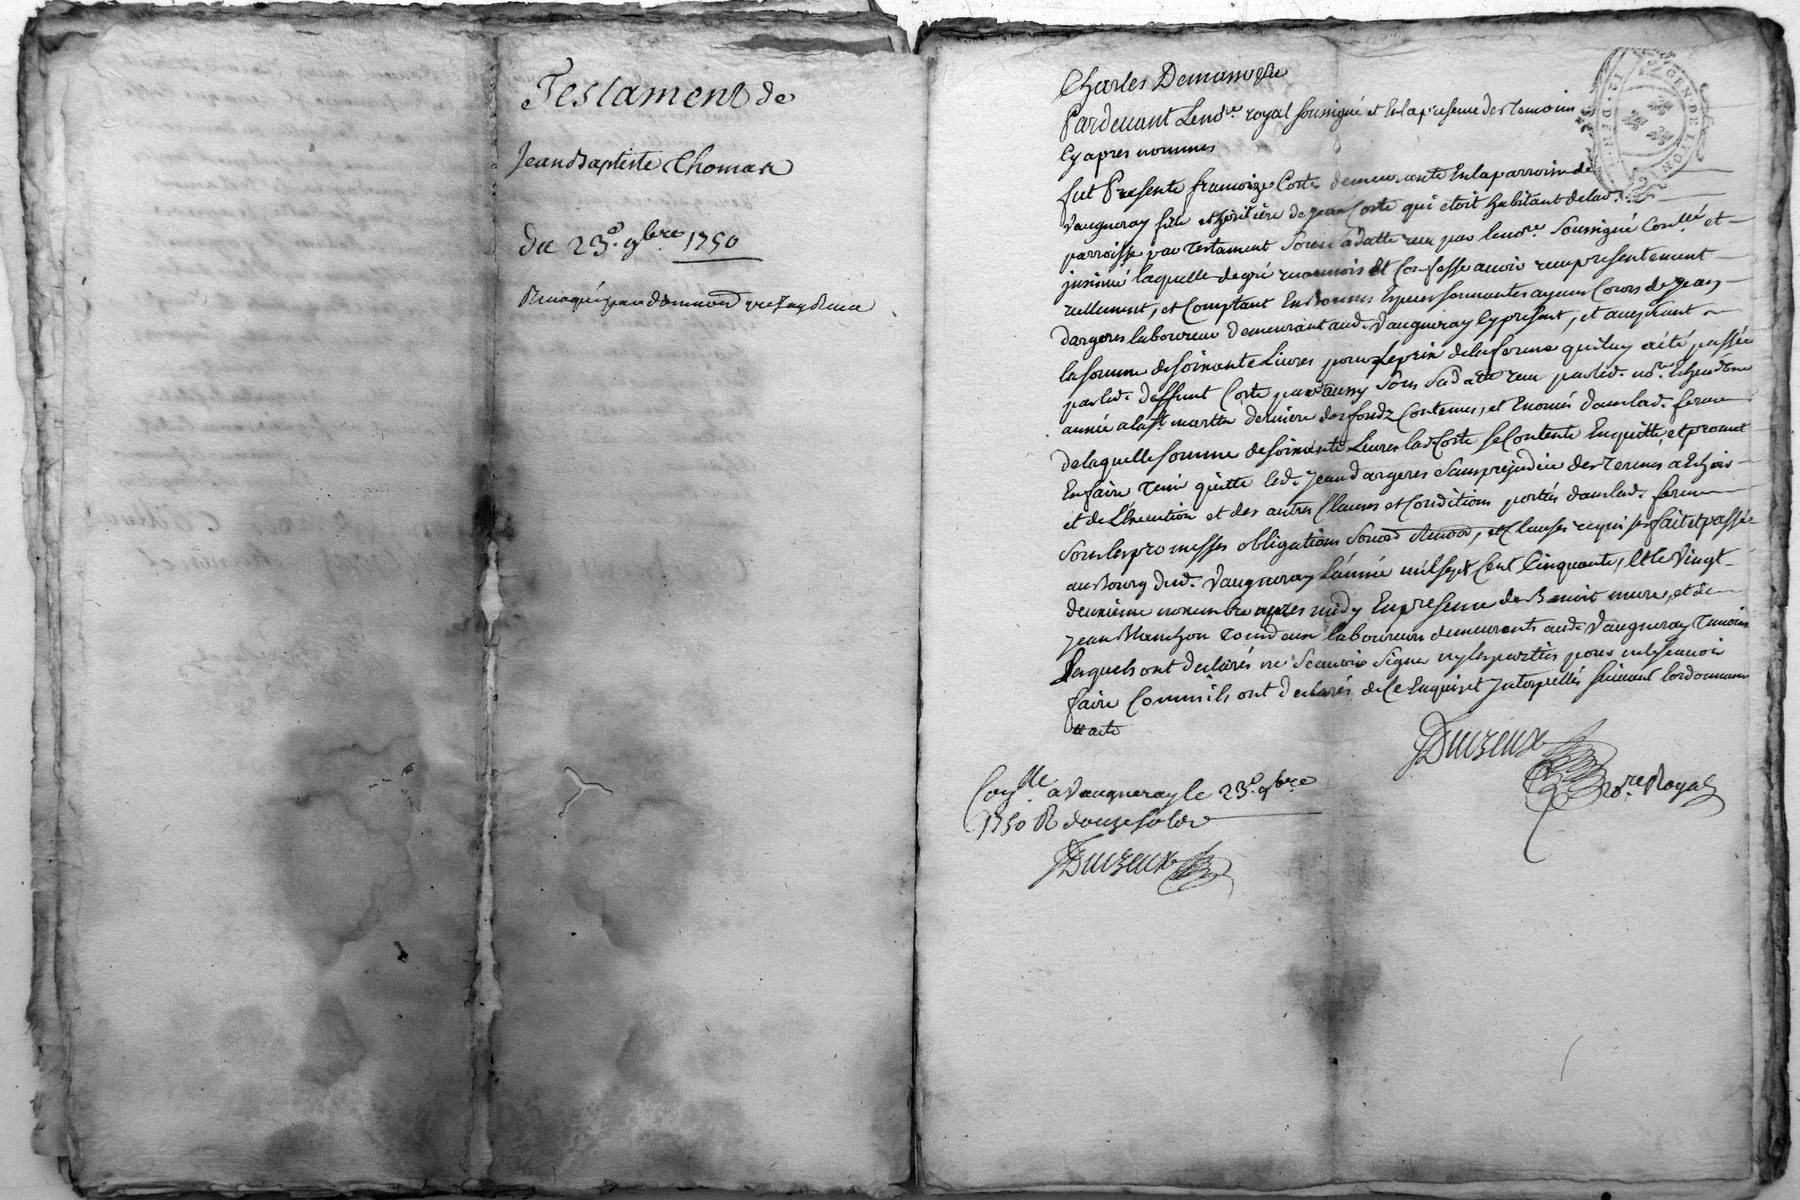 Testament de
Jean Baptiste Thomas
du 23e. 9bre 1750
Charles Demassozre
Pardevant Le nore. royal soussigné et En la presence des temoins
Cy apres nommes
fut Presente francoize Coste demeurante En la parroisse de
Vaugneray fille et heritiere de jean Coste qui etoit habitant de lad.
parroisse par testament Sous sa datte receu par le nore. Soussigné Conllé et
jnsinué laquelle de gré reconnois et Confesse avoir receu presentement
reellement, et Comptant En bonnes Especes sonnantes ayant Cours de jean
dargeres laboureur demeurant aud. Vaugneray Cy present, et acceptant
la somme de soixante Livres pour le prix de la ferme qui luy a été passée
par led. deffunt Coste par aussy sous sa datte receu par led. nore. Echeu d'une
année a la st. martin derniere des fondz Contenus, et Enoncés dans lad. ferme
de laquelle somme de soixante Livres lad. Coste se Contente En quitte, et promet
En faire tenir quitte led. jean dargeres sans prejudice des termes a Echoir
et de L'execution et des autres Clauses et Conditions portés dans lad. ferme
Sous les promesses obligations renon, et Clauses requises fait et passée
au Bourg dud. Vaugneray L'année mil sept Cent Cinquante, et le Vingt
deuxieme novembre apres midy En presence de Benoit mure, et de
jean Blanchon tous deux laboureurs demeurants aud. Vaugneray temoins
Lesquels ont declarés ne Scavoir Signer ny les parties pour ne le scavoir
faire Comm'ils ont declarés de ce Enquis et jnterpellés suivant l'ordonnance
Duizeux
nore Royal
Conllé a Vaugneray le 23e. 9bre
1750 R douze sols
Duizeux